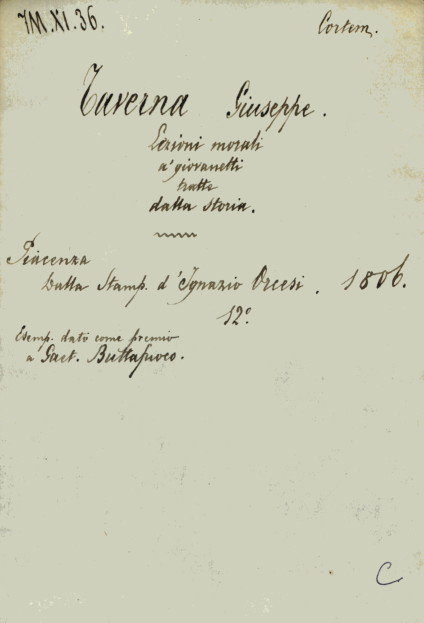 7M.XI.36.
Cortem.
Taverna Giuseppe.
Lezioni morali
a' giovanetti
tratte
dalla storia.
Piacenza
Dalla Stamp. d'Ignazio Orcesi. 1806.
12°
Esemp. dato come premio
a Gaet. Buttafuoco.
C